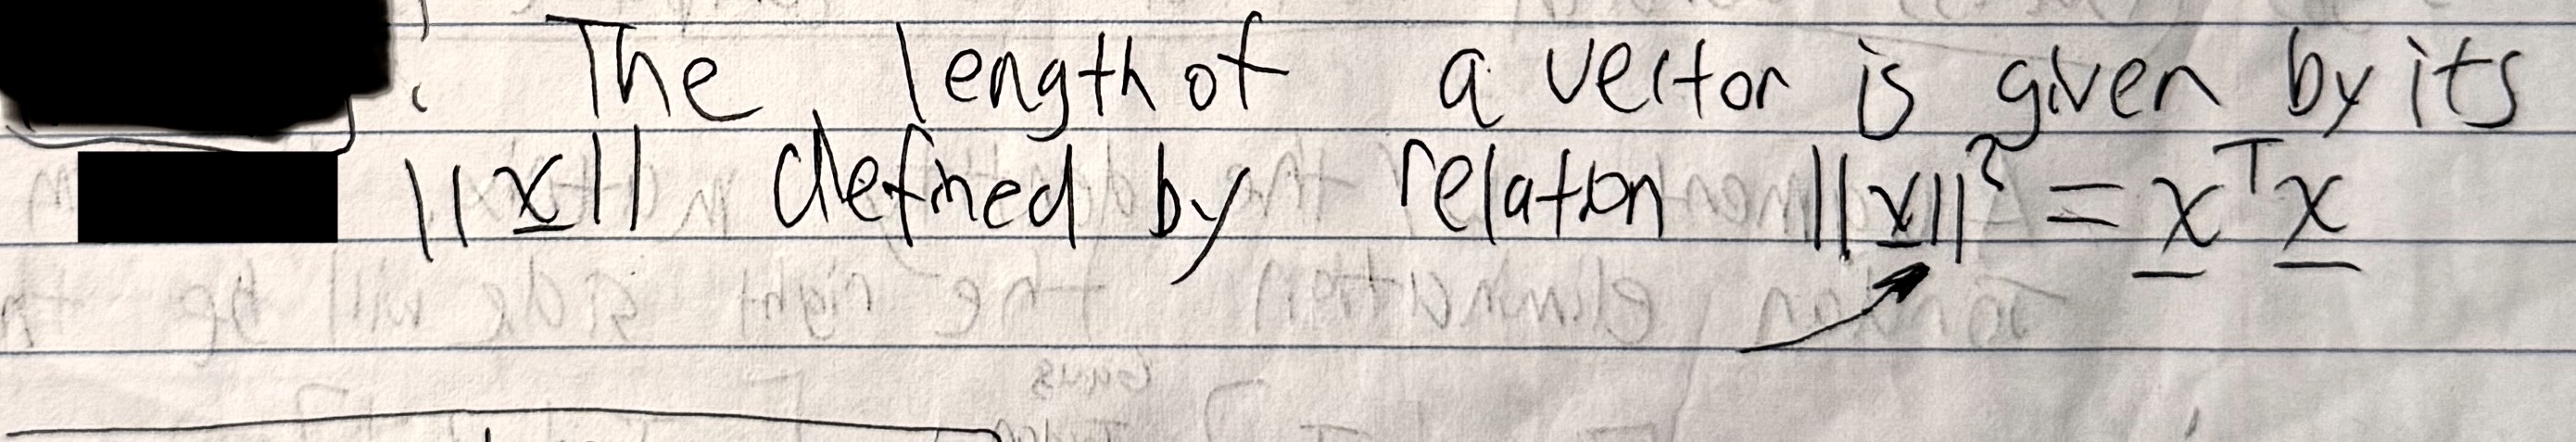 : The length of a vector is given by its
||x|| defined by relation ||x||² = xᵀx